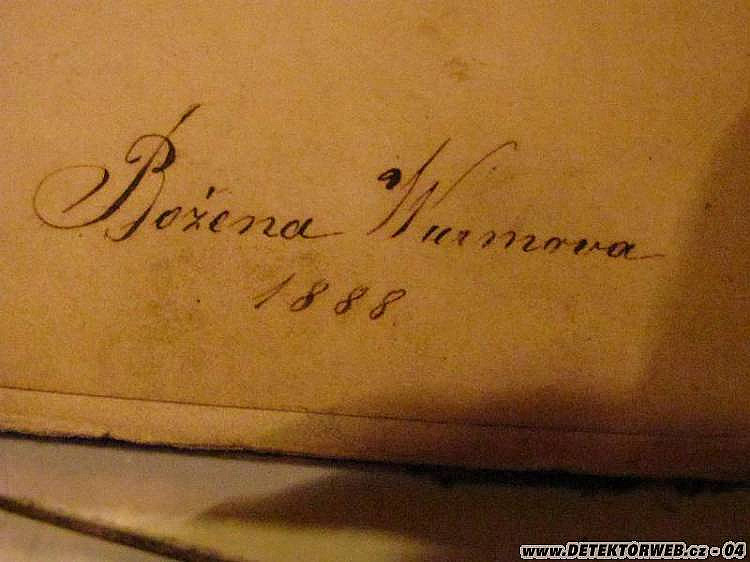 Božena Wurmova
1888
www.DETEKTORWEB.cz - 04